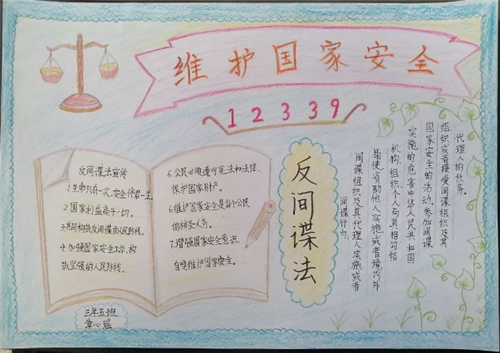 维护国家安全
12339
反间谍法宣传
1.生命只有一次,安全伴君一生。
2.国家利益高于一切。
4.加强国家安全工作,构
筑坚强的人民防线。
5.公民必须遵守宪法和法律,
保护国家财产。
6.维护国家安全是每个公民
的神圣义务。
7.增强国家安全意识,
自觉维护国家安全。
反间谍法
间谍行为:
间谍组织及其代理人实施或者
指使、资助他人实施,或者境内外
机构、组织、个人与其相勾结
实施的危害中华人民共和国
国家安全的活动。参加间谍
组织或者接受间谍组织及其
代理人的任务。
三年五班